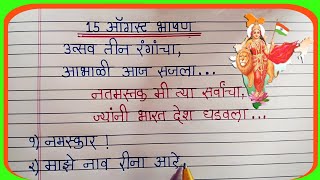 15 ऑगस्ट भाषण
उत्सव तीन रंगांचा,
आभाळी आज सजला...
नतमस्तक मी त्या सर्वांचा,
ज्यांनी भारत देश घडवला...
१) नमस्कार !
२) माझे नाव रीना आहे,